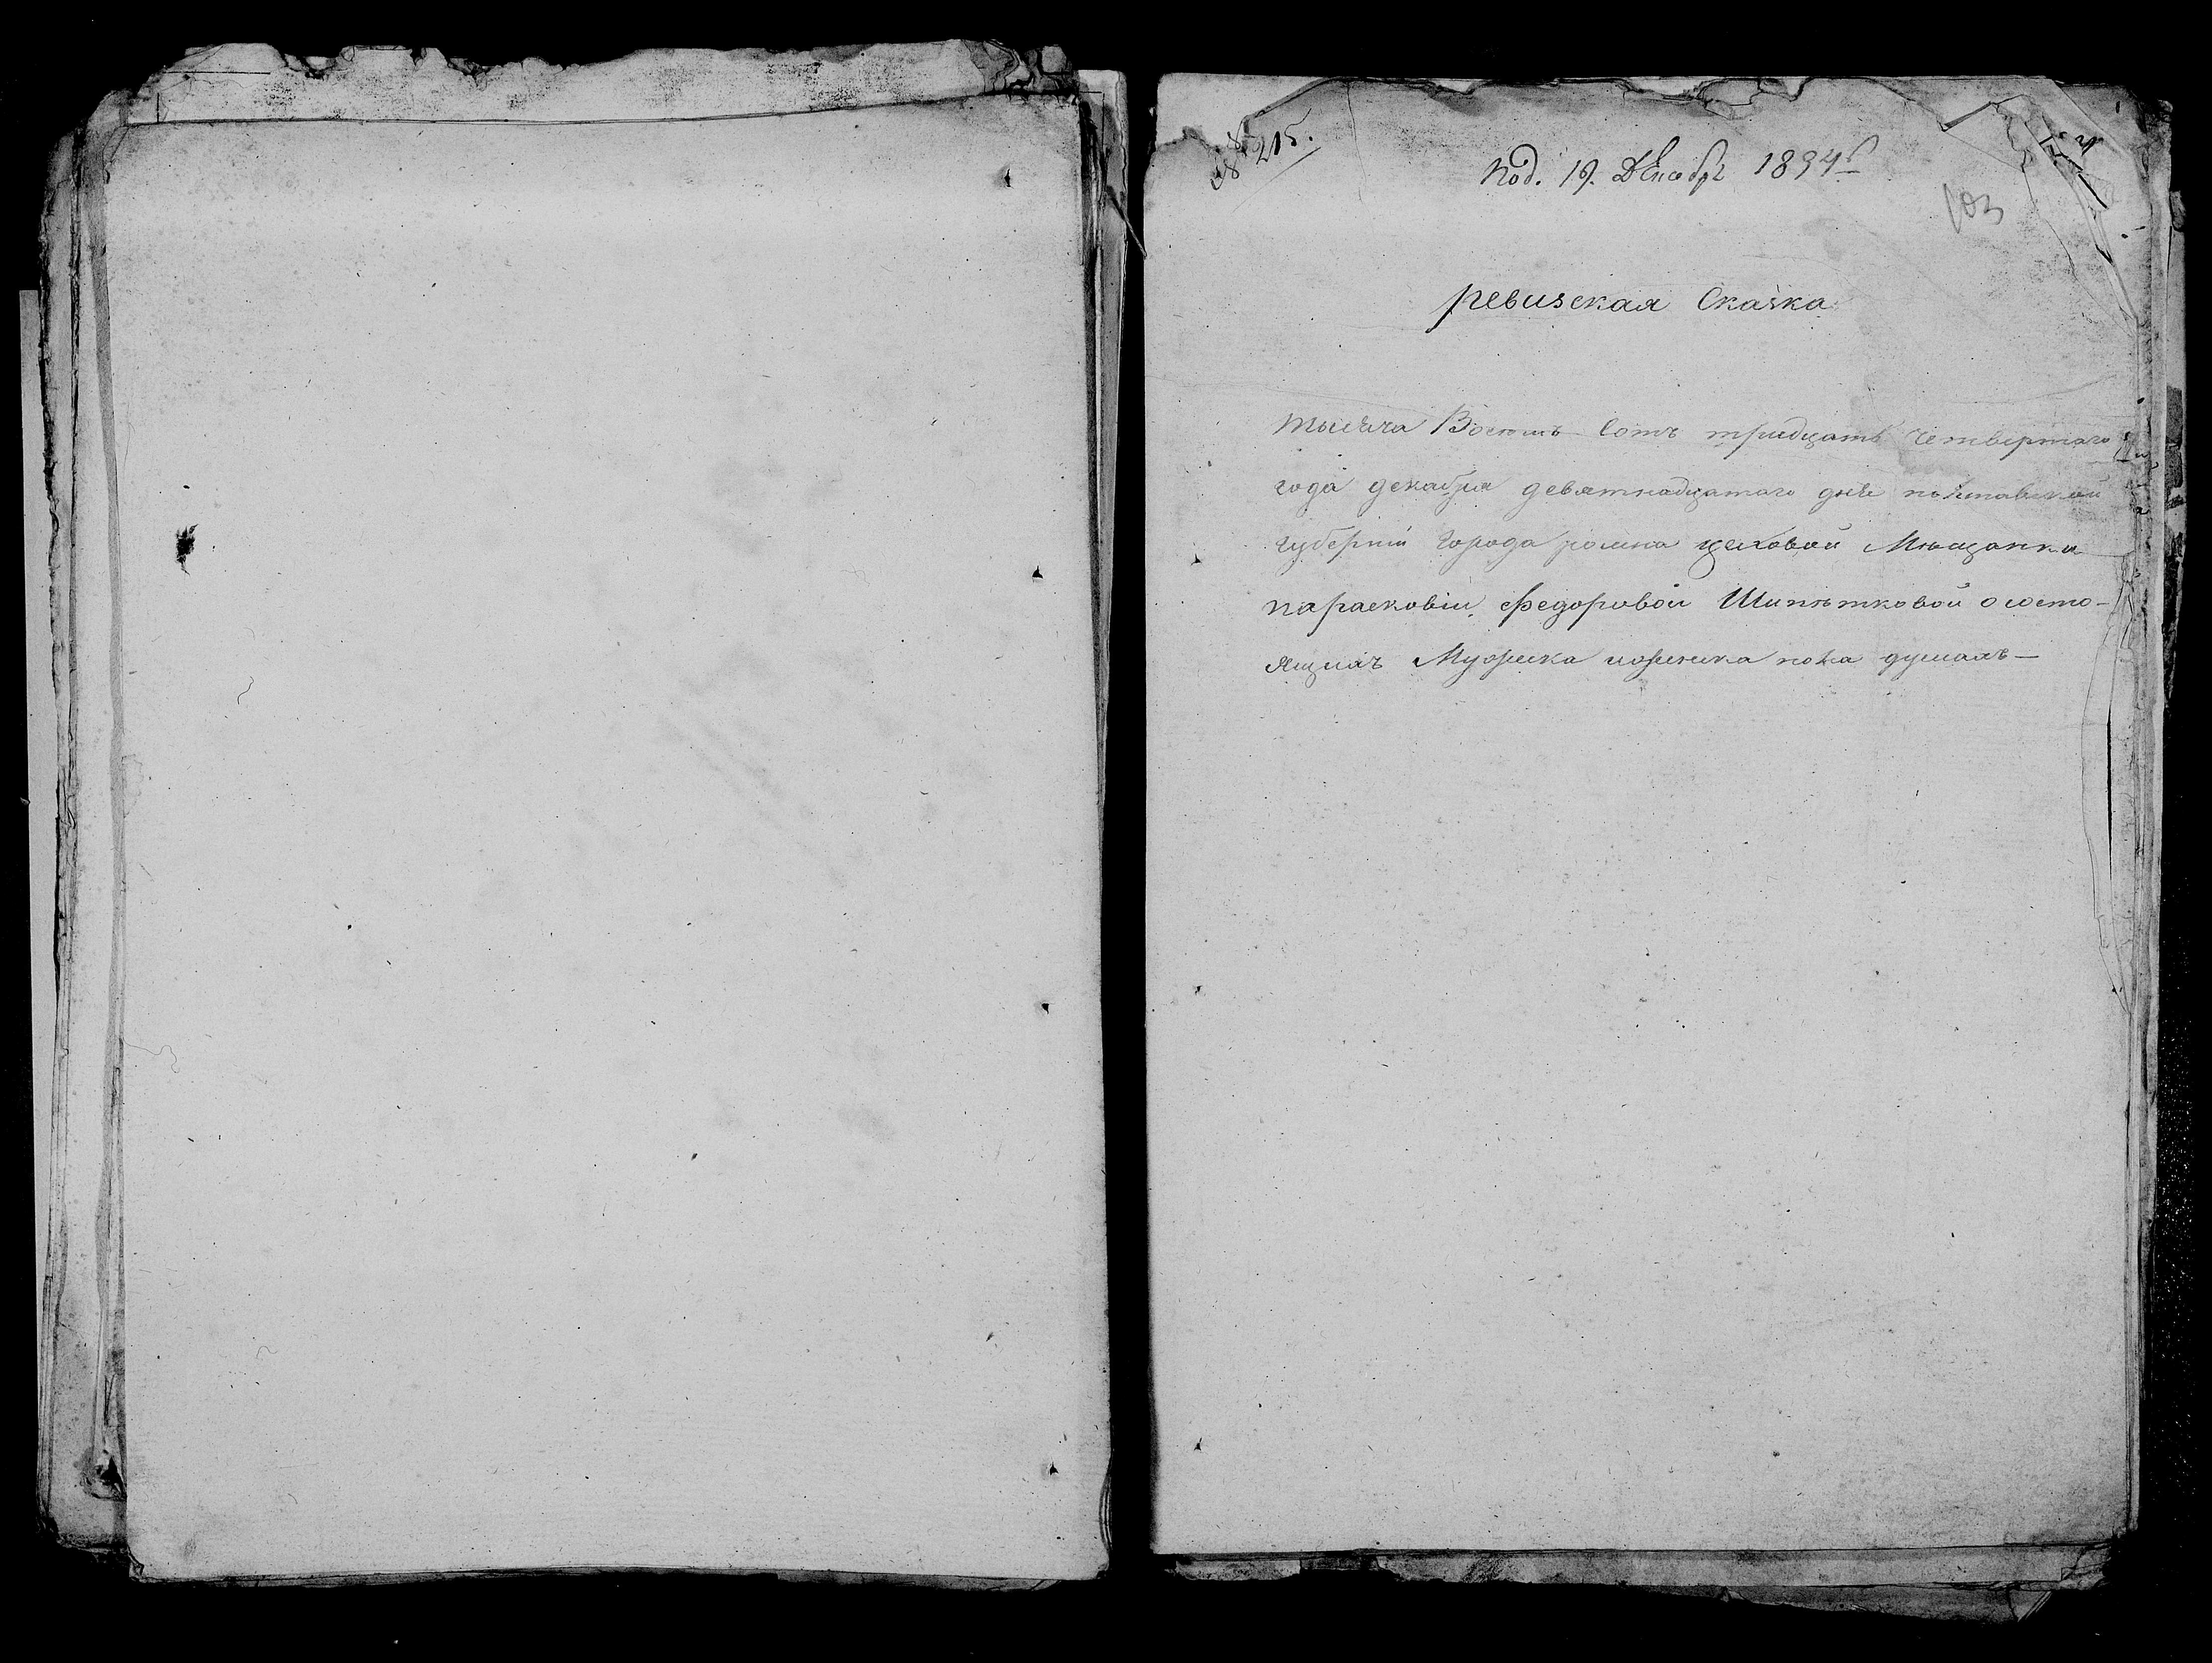 № 215.
Под. 19. Декабр 1834
103
ревизская Сказка
тысяча Восемь Сотъ тридцать Четвертаго
года декабря девятнадцатаго дня полтавской
губерніи Города ромна цеховой Мѣщанки
парасковіи федоровой Шипѣтковой о состо-
ящихъ Мужеска иженска пола душахъ—